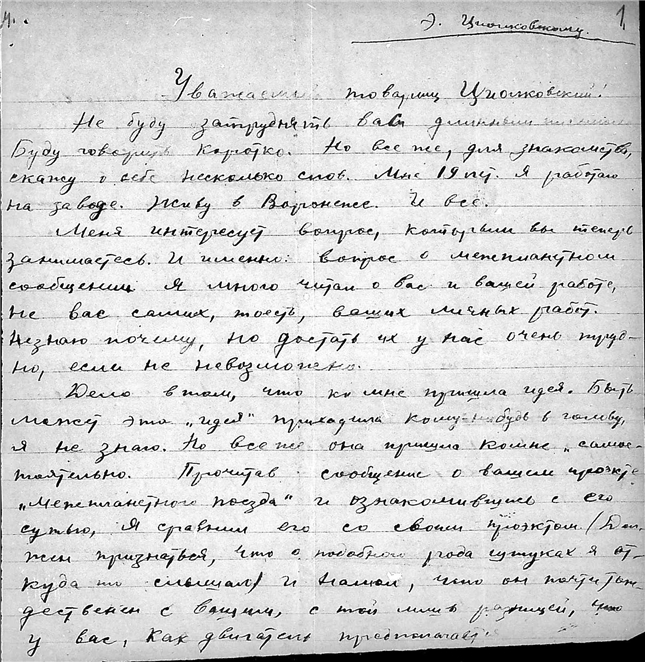 Э. Циолковскому. 1
Уважаемый товарищ Циолковский!
Не буду затруднять вас длинным
Буду говорить коротко. Но все же, для знакомства,
скажу о себе несколько слов. Мне 19 лет. Я работаю
на заводе. Живу в Воронеже. И все.
Меня интересует вопрос, которым вы теперь
занимаетесь. И именно: вопрос о межпланетном
сообщении. Я много читал о вас и вашей работе,
не вас самих, тоесть, ваших личных работ.
Незнаю почему, но достать их у нас очень труд-
но, если не невозможно.
Дело в том, что ко мне пришла идея. Быть
может эта „идея" приходила кому-нибудь в голову,
я не знаю. Но все же она пришла комне „самос-
тоятельно. Прочитав сообщение о вашем проэкте
„Межпланетного поезда" и ознакомившись с его
сутью, я сравнил его со своим проэктом (Дол-
жен признаться, что о подобного рода штуках я от-
куда то слышал) и нашол, что он почти тож-
дественен с вашим, с той лишь разницей, что
у вас, как двигатель предполагает